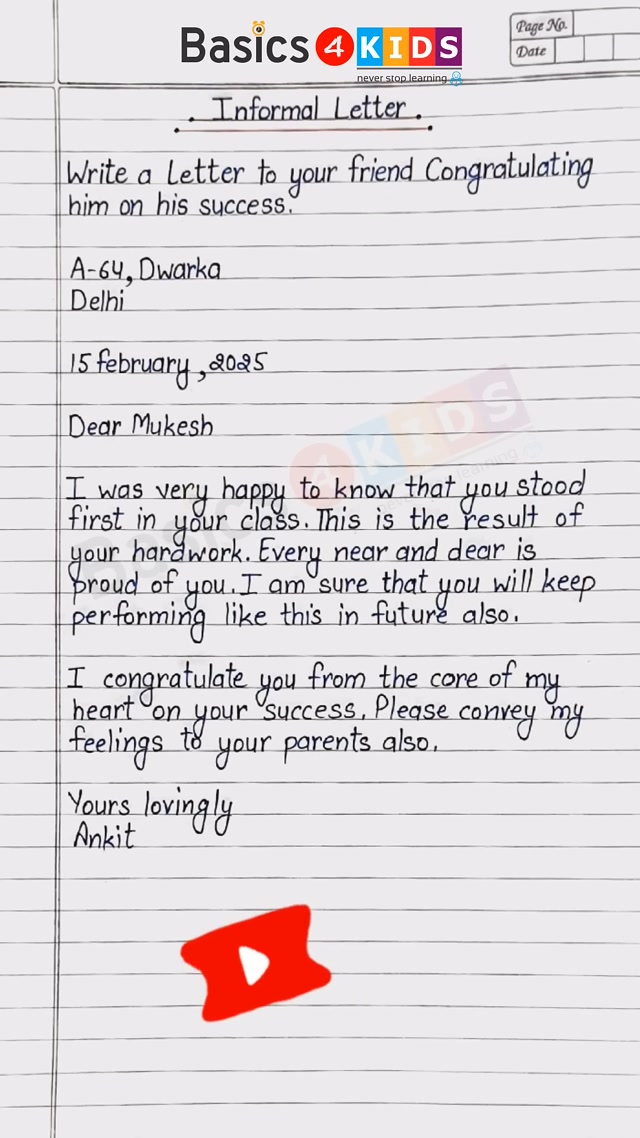 Basics 4 KIDS
never stop learning
Page No.
Date
. Informal Letter .
Write a Letter to your friend Congratulating
him on his success.
A-64, Dwarka
Delhi
15 february, 2025
Dear Mukesh
I was very happy to know that you stood
first in your class. This is the result of
your hardwork. Every near and dear is
proud of you. I am sure that you will keep
performing like this in future also.
I congratulate you from the core of my
heart on your success. Please convey my
feelings to your parents also.
Yours lovingly
Ankit
Basics 4 KIDS
never stop learning